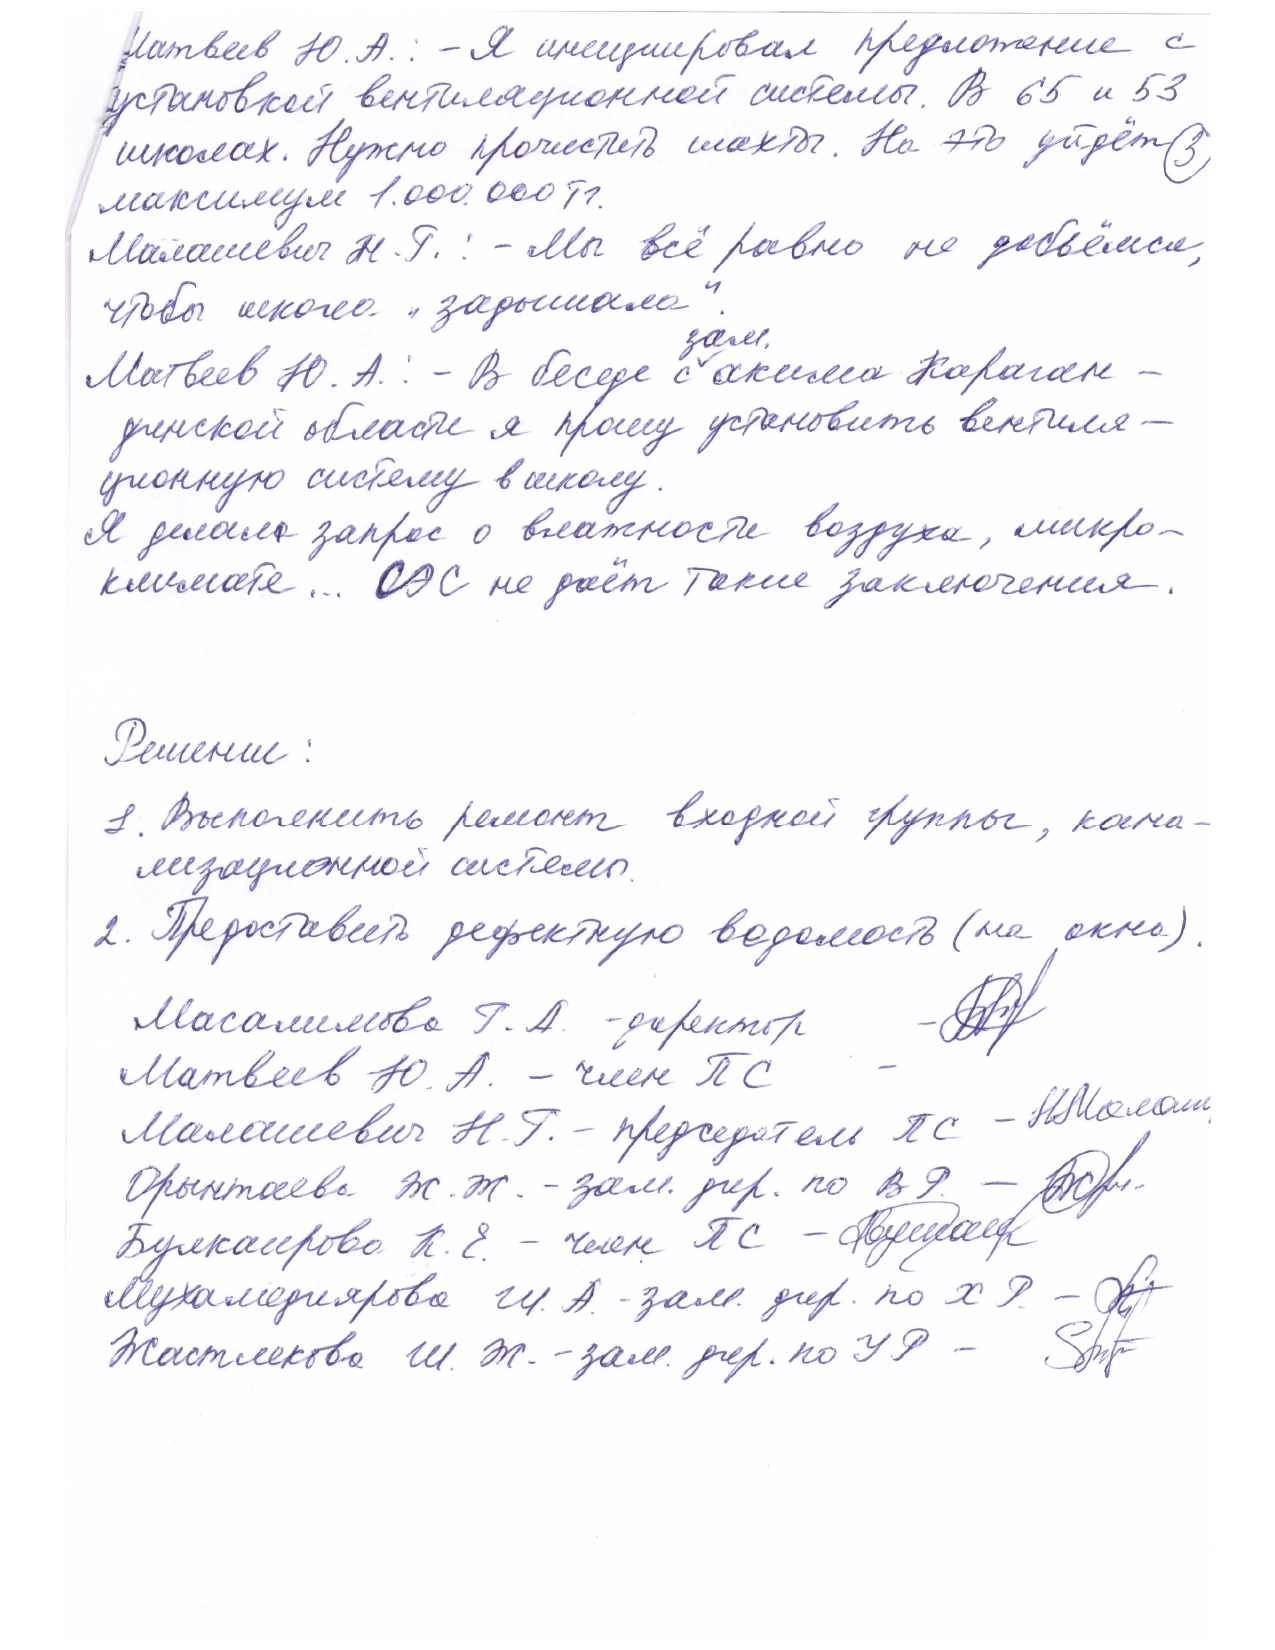 Матвеев Ю.А.: - Я инициировал предложение с
установкой вентиляционной системы. В 65 и 53
школах. Нужно прочистить шахты. На это уйдёт 3
максимум 1.000.000 тг.
Малашевич Н.Г.: - Мы всё равно не добьёмся,
чтобы школа „задышала".
зам.
Матвеев Ю.А.: - В беседе с акима Караган-
динской области я прошу установить вентиля-
ционную систему в школу.
Я делала запрос о влажности воздуха, микро-
климате... СЭС не даёт такие заключения.
Решение:
1. Выполнить ремонт входной группы, кана-
лизационной системы.
2. Предоставить дефектную ведомость (на окна).
Масалимова Г.А. - директор -
Матвеев Ю.А. - член ПС -
Малашевич Н.Г. - председатель ПС - НМалаш
Орынтаева Ж.Ж. - зам. дир. по ВР. -
Булкаирова К.Е. - член ПС -
Мухамедиярова Ш.А. - зам. дир. по ХР. -
Жастлекова Ш.Ж. - зам. дир. по УР -